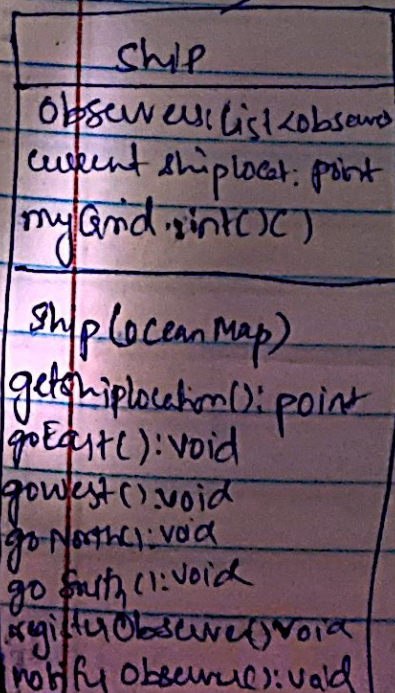 Ship
Observers: List<observe
current shiplocat: point
myGrid: int()()
Ship (oceanMap)
getShiplocation(): point
goEast(): void
gowest(): void
go North(): void
go South(): void
registerObserver() void
notify Observer(): void